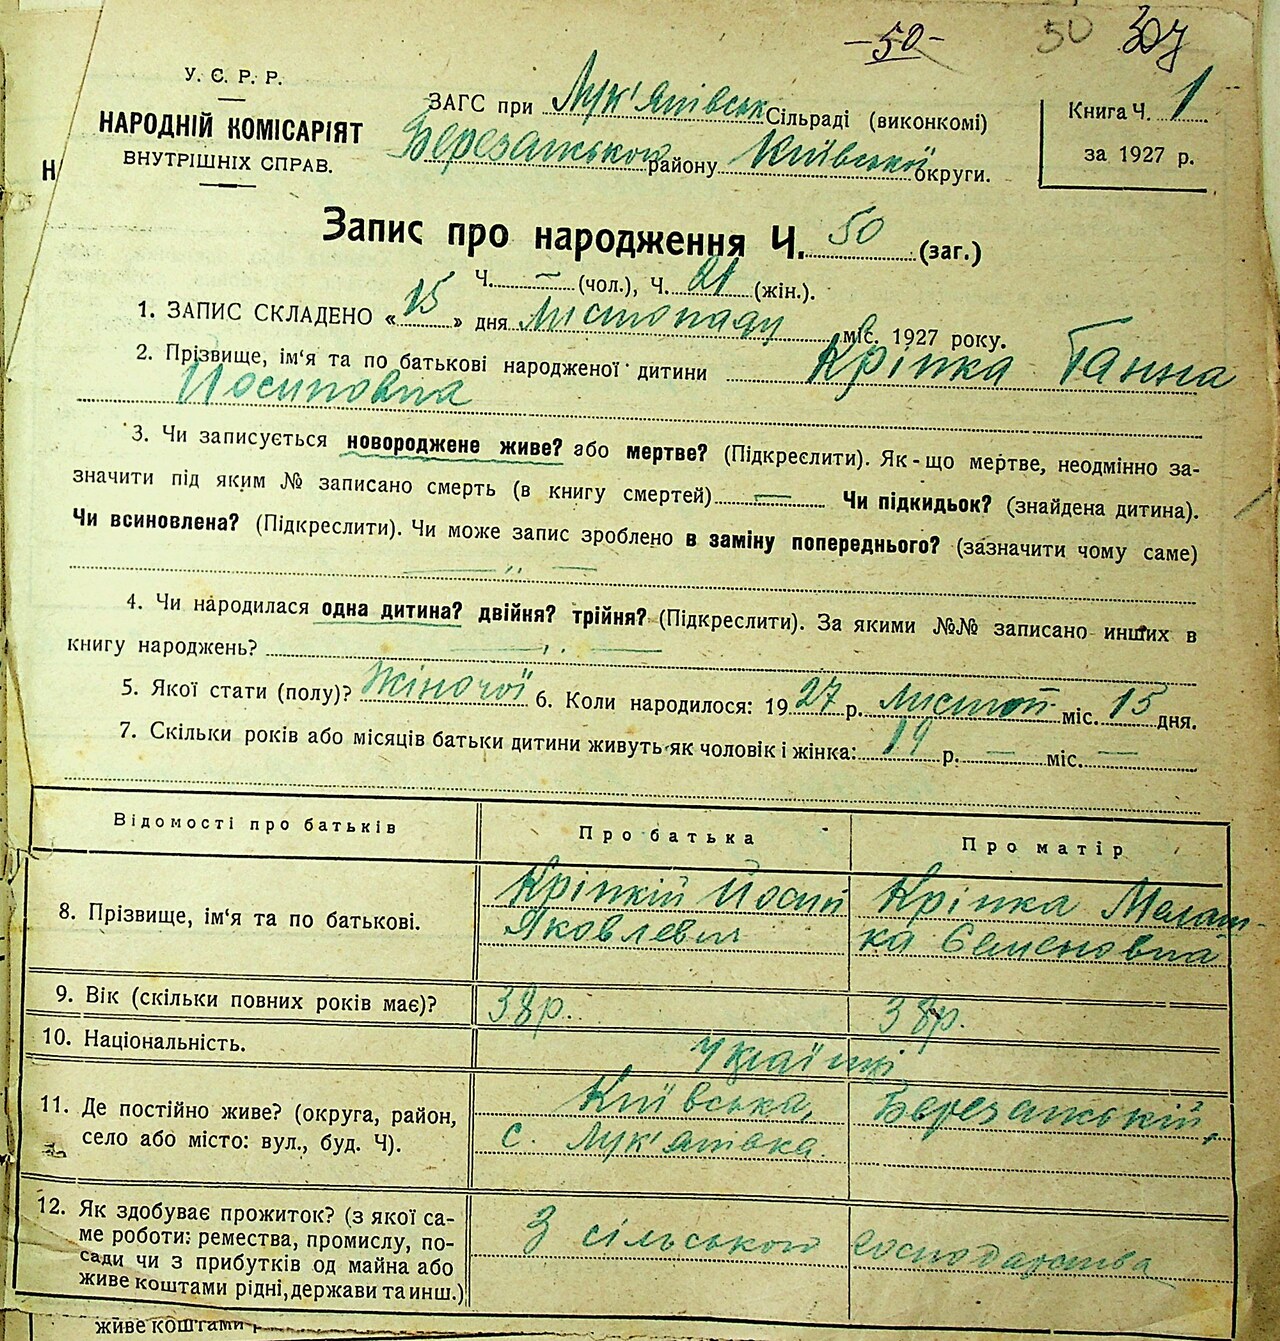 -50- 50 307
У. Є. Р. Р.
НАРОДНІЙ КОМІСАРІЯТ
ВНУТРІШНІХ СПРАВ.
ЗАГС при Лук'янівськ Сільраді (виконкомі)
Березанського району Київської округи.
Книга Ч. 1
за 1927 р.
Н
Запис про народження Ч. 50 (заг.)
Ч. — (чол.), Ч. 21 (жін.).
1. ЗАПИС СКЛАДЕНО «15» дня Листопаду міс. 1927 року.
2. Прізвище, ім'я та по батькові народженої дитини Кріпка Ганна
Йосиповна
3. Чи записується новороджене живе? або мертве? (Підкреслити). Як-що мертве, неодмінно за-
значити під яким № записано смерть (в книгу смертей) — Чи підкидьок? (знайдена дитина).
Чи всиновлена? (Підкреслити). Чи може запис зроблено в заміну попереднього? (зазначити чому саме)
— „ —
4. Чи народилася одна дитина? двійня? трійня? (Підкреслити). За якими №№ записано инших в
книгу народжень? — „ —
5. Якої стати (полу)? Жіночої 6. Коли народилось: 1927 р. Листоп міс. 15 дня.
7. Скільки років або місяців батьки дитини живуть як чоловік і жінка: 19 р. — міс. —
Відомості про батьків Про батька Про матір
8. Прізвище, ім'я та по батькові. Кріпкій Йосип Кріпка Малаш-
Яковлевич ка Семеновна
9. Вік (скільки повних років має)? 38 р. 38 р.
10. Національність. Українці
11. Де постійно живе? (округа, район, Київська, Березанський,
село або місто: вул., буд. Ч). с. Лук'янівка.
12. Як здобуває прожиток? (з якої са-
ме роботи: ремества, промислу, по- З сільського господарства
сади чи з прибутків од майна або
живе коштами рідні, держави та инш.)
живе коштами р